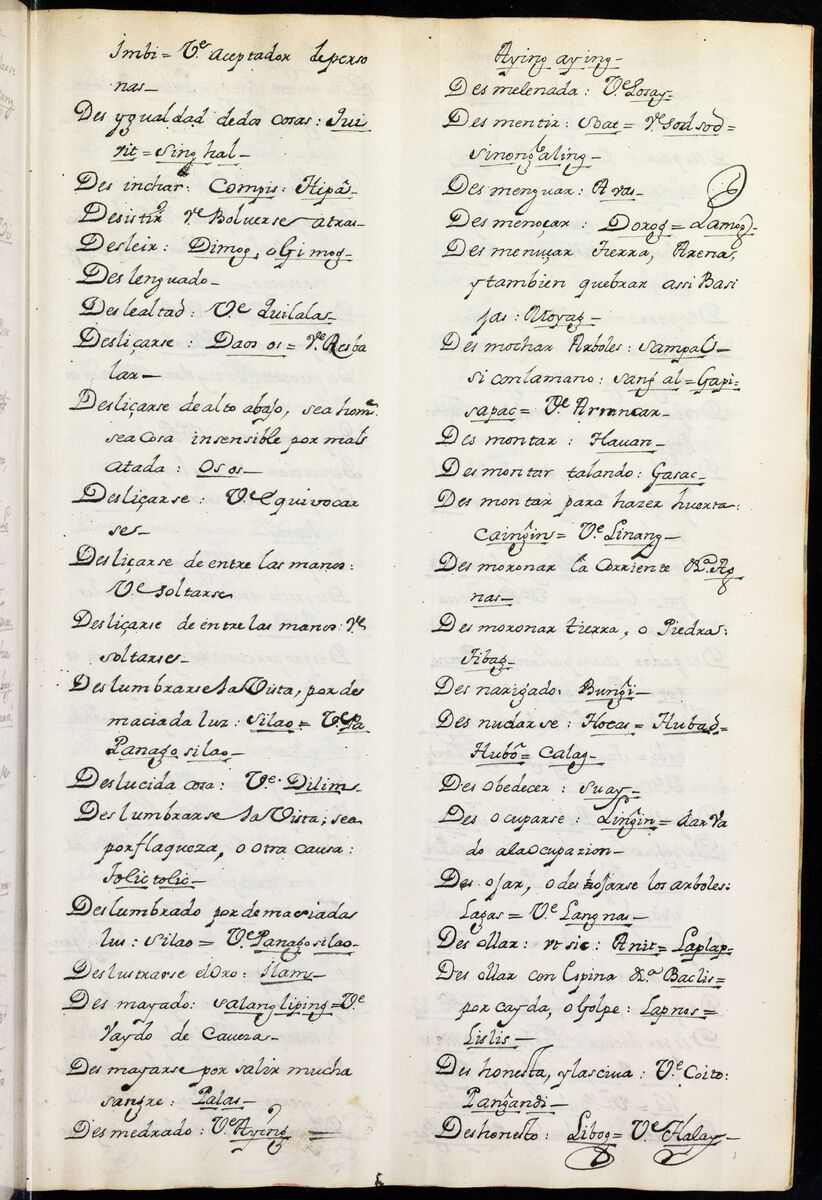 Imbi = Ve. aceptador de perso
nas_
Des ygualdad de dos cosas: Qui
rit = Singhal_
Des inchar: Compis: Hipâ_
Desistir Ve Bolverse atras_
Desleir: Dimog, o Gimog_
Des lenguado_
Deslealtad: Ve Quilalas_
Desliçarse: Daos os = Ve. Resba
lar_
Desliçarse de alto abajo, sea hom.e
sea cosa insensible por mal
atada: Os os_
Desliçarse: Ve equivocar
se_
Desliçarse de entre las manos:
Ve soltarse
Desliçarse de entre las manos: Ve
soltarse_
Deslumbrarse la Vista, por de
maciada luz: Silao = Ve. Pa
Panagosilao_
Deslucida cosa: Ve. Dilim_
Deslumbrarse la Vista; sea
por flaqueza, o otra causa:
Tolictolic_
Deslumbrado por demaciada
luz: Silao = Ve. Panagosilao_
Deslustrarse el Oro: Ilam_
Des mayado: Salangliping = Ve
Vaydo de Caveza_
Des mayarse por salir mucha
sangre: Palas_
Des medrado: Ve Aying =
Aying aying_
Des melenada: Ve Losay_
Des mentir: Sbat = Ve. Sodsod =
Sinongaling_
Des menguar: Avas_
Des menoçar: Dorog = Lamog_
Des menuçar Tierra, Arena,
y tambien quebrar assi Basi
jas:
Des mochar Arboles: Sampal_
si con la mano: Sang al = Gapi =
sapac = Ve. Arrancar_
Des montar: Hauan_
Des montar talando: Gasac_
Des montar para hazer huerta:
Caingin = Ve. Linang_
Des moronar la Corriente &a. Ag
nas_
Des moronar tierra, o Piedras:
Tibag_
Des narigado: Bungi_
Des nudarse: Hocas = Hubad =
Hubô = Calag_
Des obedecer: Suay_
Des ocuparse: Lingin = dar Va
do ala Ocupazion_
Des ojar, o des hojarse los arboles:
Lagas = Ve Langnas_
Des ollar: vt sic: Anit = Laplap_
Des ollar con Espina &a. Baclis =
por cayda, o Golpe: Lapnos =
Lislis_
Des honesta, y lasciva: Ve. Coito:
Pangandi_
Deshonesto: Libog = Ve Halay_